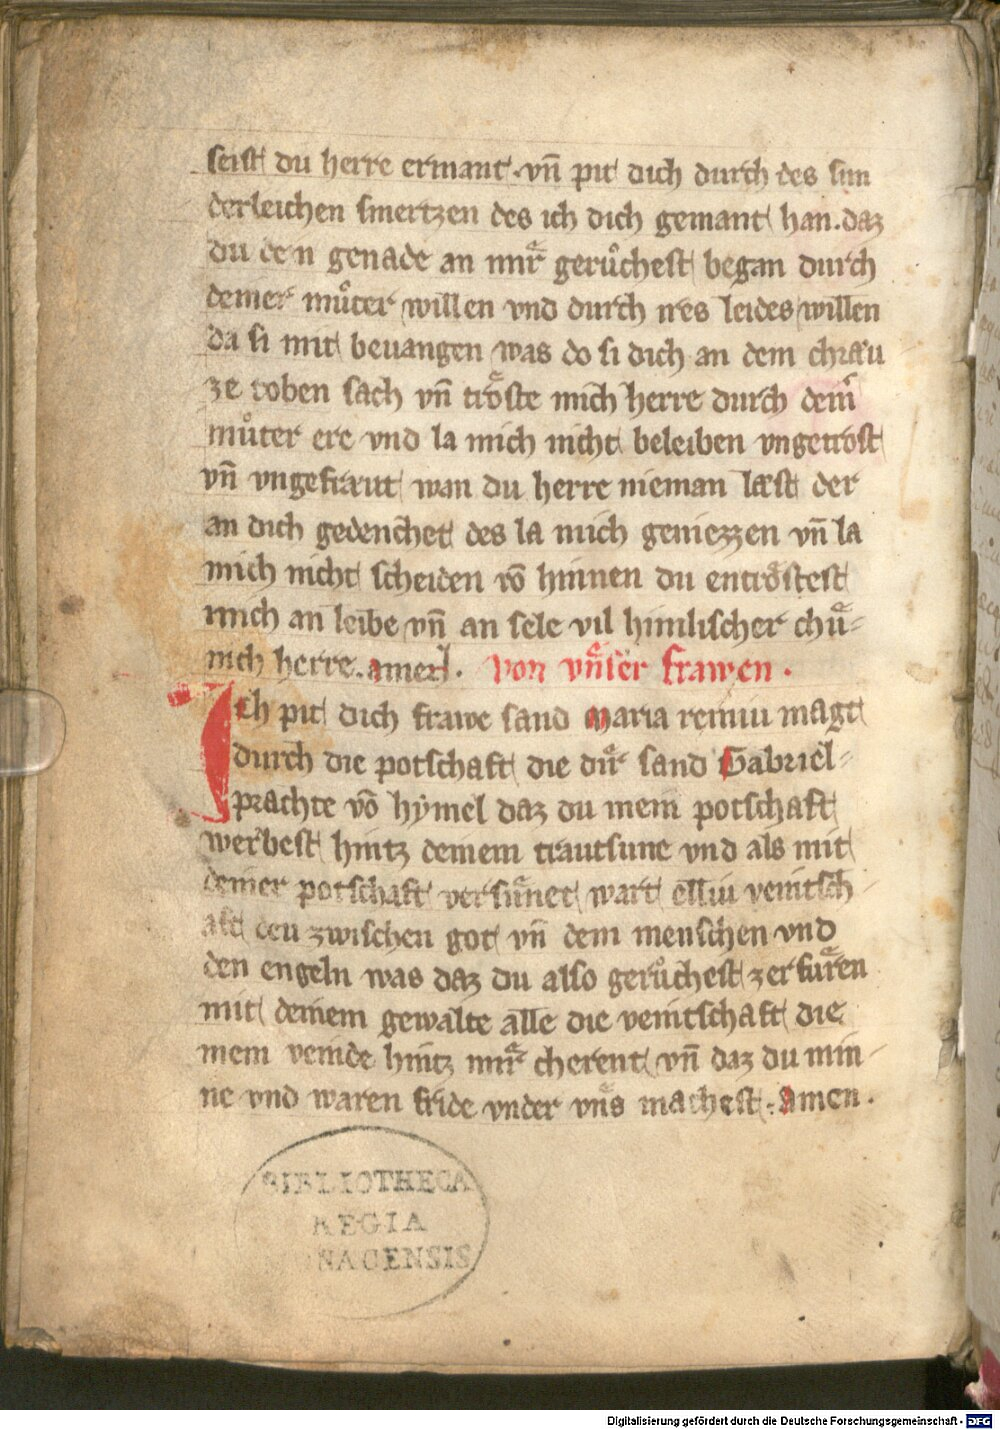 seist du herre ermant. vn̄ pit dich durch des sun
derleichen smertzen des ich dich gemant han. daz
du dein genade an mir gerůchest began durch
deiner můter willen vnd durch ires leides willen
da si mit beuangen was do si dich an dem chræu
ze toben sach vn̄ trőste mich herre durch deiner
můter ere vnd la mich nicht beleiben vngetrost
vn̄ vngefræut wan du herre nieman læst der
an dich gedenchet des la mich geniezzen vn̄ la
mich nicht scheiden vō hinnen du entrőstest
mich an leibe vn̄ an sele vil himlischer chuͤ-
nich herre. amen. von vnser frawen.
Ich pit dich frawe sand maria reiniu magt
durch die potschaft die dir sand Gabriel-
prachte vō hẏmel daz du mein potschaft
werbest hintz deinem trautsune vnd als mit
deiner potschaft versuͤnet wart elliu veintsch
aft deu zwischen got vn̄ dem menschen vnd
den engeln was daz du also gerůchest zerfuͤren
mit deinem gewalte alle die veintschaft die
mein veinde hintz mir cherent vn̄ daz du min-
ne vnd waren fride vnder vns machest. Amen.
BIBLIOTHECA
REGIA
NACENSIS
Digitalisierung gefördert durch die Deutsche Forschungsgemeinschaft - DFG